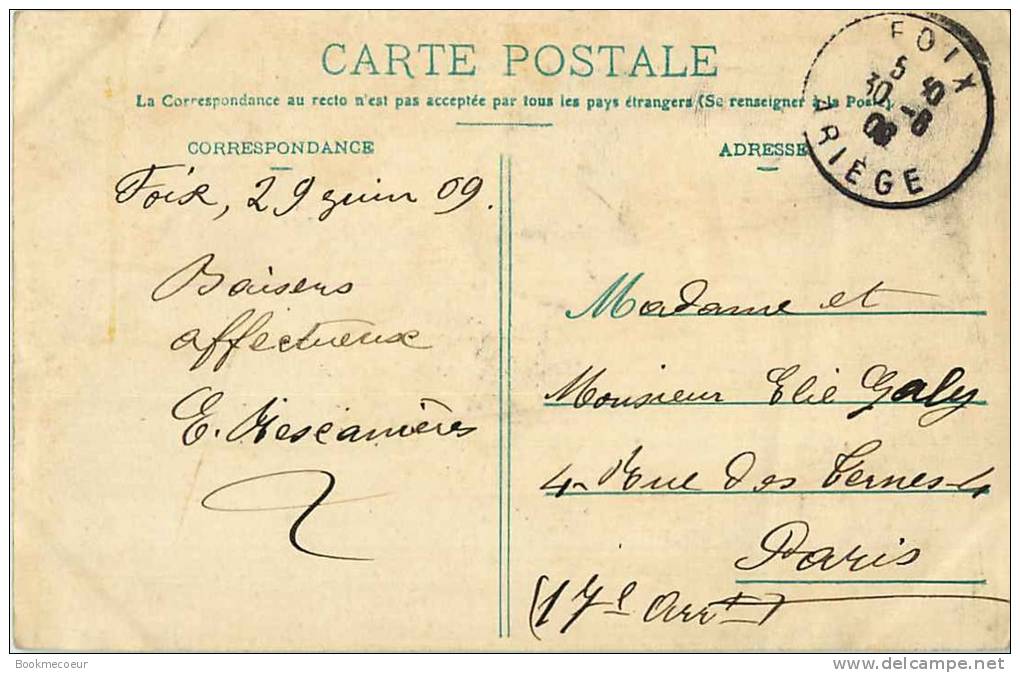 CARTE POSTALE
La Correspondance au recto n'est pas acceptée par tous les pays étrangers (Se renseigner à la Poste).
CORRESPONDANCE
Foix, 29 juin 09.
Baisers
affectueux
E.
ADRESSE
FOIX
5 40
30 -6
09
ARIÈGE
Madame et
Monsieur Elie Galy
4- Rue des Ternes-4
Paris
(17e Arrt)
Bookmecoeur
delcampe.net